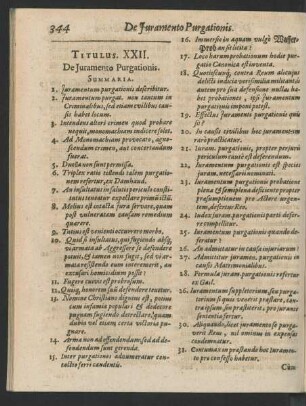 344
De Juramento Purgationis.
TITULUS. XXII.
De Juramento Purgationis.
SUMMARIA.
1. Juramentum purgationis describitur.
2. Juramentum purgat. non tantum in
Criminalibus, sed etiam civilibus cau-
sis habet locum.
3. Intendens alteri crimen quod probare
nequit, monomachiam indicere solet.
4. Ad Monomachiam provocare, agno-
scendum crimen, aut certandum
fuerat.
5. Duella non sunt permissa.
6. Triplex ratio
refertur, ex Damhoud.
7. An insultatus in salutis periculo consti-
tutus teneatur expectare insultantem.
8. Melius est intacta jura servare, quam
post vulneratam causam remedium
quærere.
9. Tutius est venienti occurrere morbo.
10. Quid si insultatus, qui fugiendo absq;
vi armata ab Aggressore se defendere
potuit, & tamen non fugit, sed vi ar-
mata resistendo eum interemerit, an
excusari homicidium possit?
11. Fugere cuivis est probrosum.
12. Quisq; honorem suū defendere tenetur.
13. Nemine Christiano dignius est, poenam
cum infamia populari & dedecore
pugnam fugiendo detrectare, quam
dubio vel etiam certa victoria pu-
gnare.
14. Arma non ad offendendum sed ad de-
fendendum sunt gerenda.
15. Inter purgationes adnumeratur contu-
ctio ferri candentis.
16. Immersio in aquam vulgò Wasser-
Prob an sit licita?
17. Loco harum probationum hodie pur-
gatio Canonica est inventa.
18. Quotiescunq; contra Reum alicujus
delicti indicia verisimilia militant
autem pro sui defensione nullas ha-
beat probationes, ei juramentum
purgationis imponi potest.
19. Effectus juramenti purgationis quis
sit?
20. In causis civilibus hoc juramentum
non præstatur.
21. Juram. purgationis, propter perjurii
periculum raro est deferendum.
22. Juramentum purgationis est species
juram. necessarii nominati.
23. Juramentum purgationis probatione
plena & semiplena deficiente propter
præsumptionem pro Actore urgen-
tem, defertur Reo.
24. Judex juram. purgationis parti defer-
re consuevit.
25. Juramentum purgationis quando de-
feratur?
26. An admittatur in causa injuriarum?
27. Admittitur juramentum, purgationis, in
causis Matrimonialibus.
28. Formula juram. purgationis refertur
ex Gail.
29. Juramentum suppletorium, seu purga-
torium si quis vocetur præstare, con-
strari possit, si
præstandum esse.
30. Aliquando, licet juramento se purga-
verit Reus, nil ominus in expensis
condemnatur.
31. Contumax in præstando hoc Juramen-
to pro confesso habetur.
Cùm